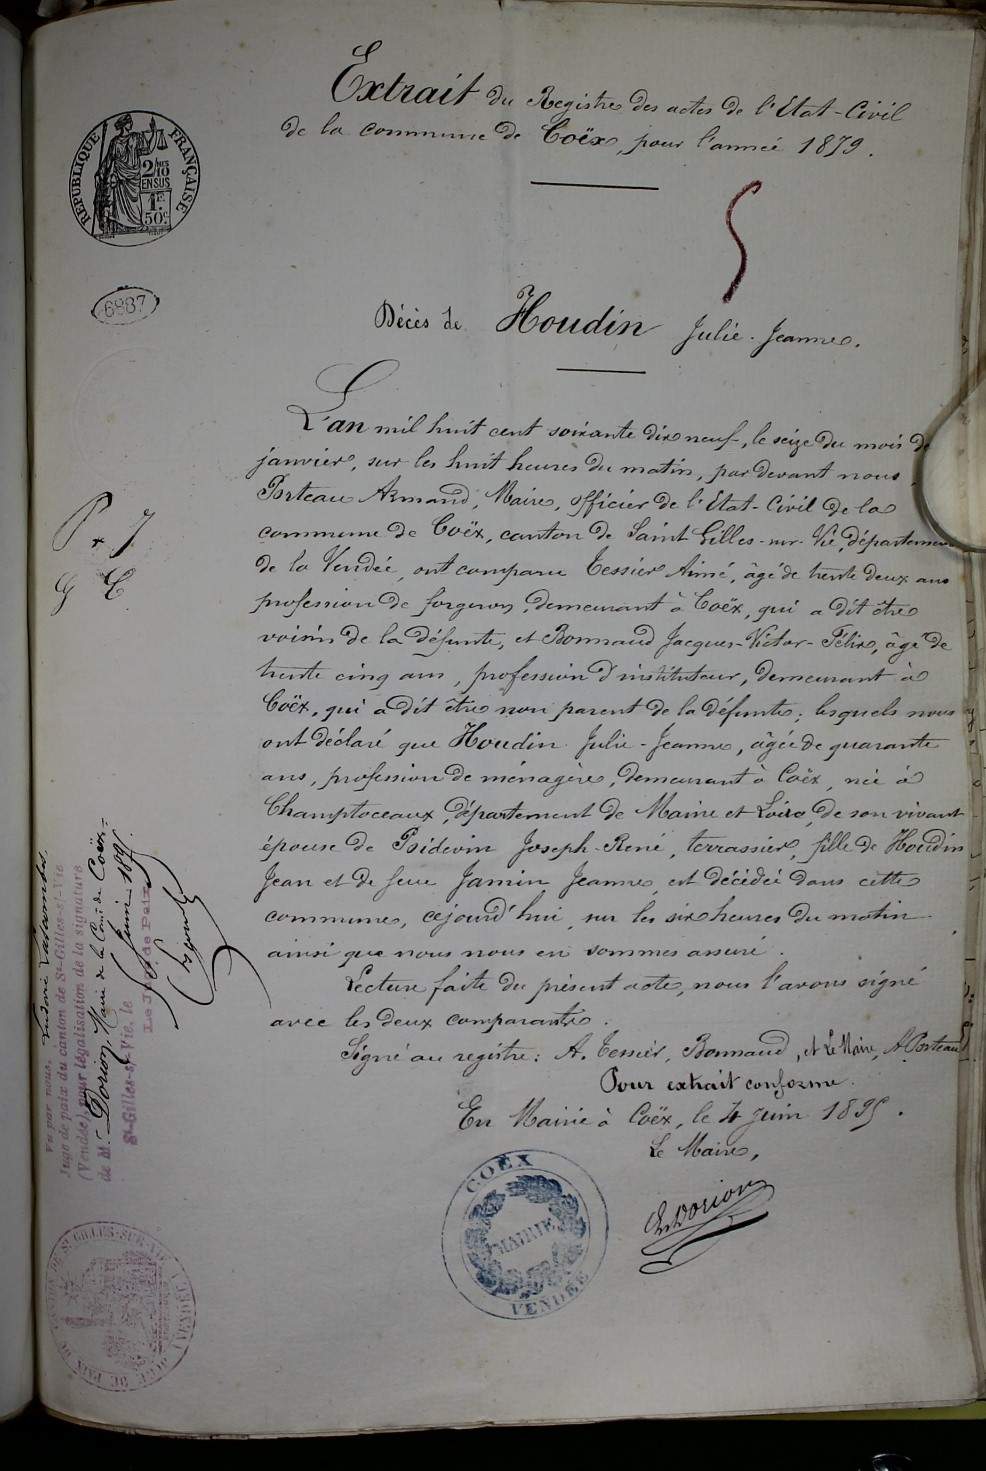 Extrait du Registre des actes de l'Etat-Civil
de la commune de Coëx, pour l'année 1879.
RÉPUBLIQUE FRANÇAISE
2/10
EN SUS
1F.
50c
6887
5
Décès de Houdin Julie-Jeanne.
L'an mil huit cent soixante dix neuf, le seize du mois de
janvier, sur les huit heures du matin, par devant nous,
Porteau Armand, Maire, officier de l'Etat-Civil de la
commune de Coëx, canton de Saint Gilles-sur-Vie, département
de la Vendée, ont comparu Tessier Aimé, âgé de trente deux ans
profession de forgeron, demeurant à Coëx, qui a dit être
voisin de la défunte, et Bonnaud Jacques-Victor-Félix, âgé de
trente cinq ans, profession d'instituteur, demeurant à
Coëx, qui a dit être non parent de la défunte; lesquels nous
ont déclaré que Houdin Julie-Jeanne, âgée de quarante
ans, profession de ménagère, demeurant à Coëx, née à
Champtoceaux, département de Maine et Loire, de son vivant
épouse de Joseph-René, terrassier, fille de Houdin
Jean et de feue Jamin Jeanne, est décédée dans cette
commune, cejourd'hui, sur les six heures du matin
ainsi que nous nous en sommes assuré.
Lecture faite du présent acte, nous l'avons signé
avec les deux comparants.
Signé au registre: A. Tessier, Bonnaud, et Le Maire, A Porteau
Pour extrait conforme.
En Mairie à Coëx, le 4 Juin 1895.
Le Maire,
Dorion
COËX
MAIRIE
VENDÉE
Vu par nous,
Juge de paix du canton de St-Gilles-s/-Vie
(Vendée), pour légalisation de la signature
de M. Dorion, Maire de la Comne de Coëx
St-Gilles-s/-Vie, le Juin 1895
Le Juge de Paix